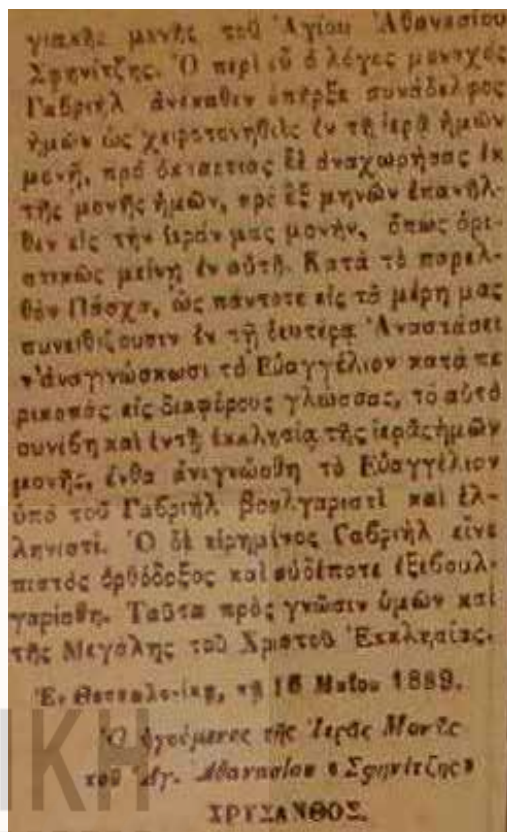 γιακῆς μονῆς τοῦ Ἁγίου Ἀθανασίου
Σφηνίτζης. Ὁ περὶ οὗ ὁ λόγος μοναχὸς
Γαβριὴλ ἀνέκαθεν ὑπῆρξε συνάδελφος
ἡμῶν ὡς χειροτονηθεὶς ἐν τῇ ἱερᾷ ἡμῶν
μονῇ, πρὸ ὀκταετίας δὲ ἀναχωρήσας ἐκ
τῆς μονῆς ἡμῶν, πρὸ ἓξ μηνῶν ἐπανῆλ-
θεν εἰς τὴν ἱεράν μας μονήν, ὅπως ὁρι-
στικῶς μείνῃ ἐν αὐτῇ. Κατὰ τὸ παρελ-
θὸν Πάσχα, ὡς πάντοτε εἰς τὰ μέρη μας
συνειθίζουσιν ἐν τῇ δευτέρᾳ Ἀναστάσει
ν' ἀναγινώσκωσι τὸ Εὐαγγέλιον κατὰ πε
ρικοπὰς εἰς διαφόρους γλώσσας, τὸ αὐτὸ
συνέβη καὶ ἐν τῇ ἐκκλησίᾳ τῆς ἱερᾶς ἡμῶν
μονῆς, ἔνθα ἀνεγνώσθη τὸ Εὐαγγέλιον
ὑπὸ τοῦ Γαβριὴλ βουλγαριστὶ καὶ ἑλ-
ληνιστί. Ὁ δὲ εἰρημένος Γαβριὴλ εἶνε
πιστὸς ὀρθόδοξος καὶ οὐδέποτε ἐξεβουλ-
γαρίσθη. Ταῦτα πρὸς γνῶσιν ὑμῶν καὶ
τῆς Μεγάλης τοῦ Χριστοῦ Ἐκκλησίας.
Ἐν Θεσσαλονίκῃ, τῇ 16 Μαΐου 1889.
Ὁ ἡγούμενος τῆς Ἱερᾶς Μονῆς
τοῦ Ἁγ. Ἀθανασίου «Σφηνίτζης»
ΧΡΥΣΑΝΘΟΣ.
ΙΚΗ